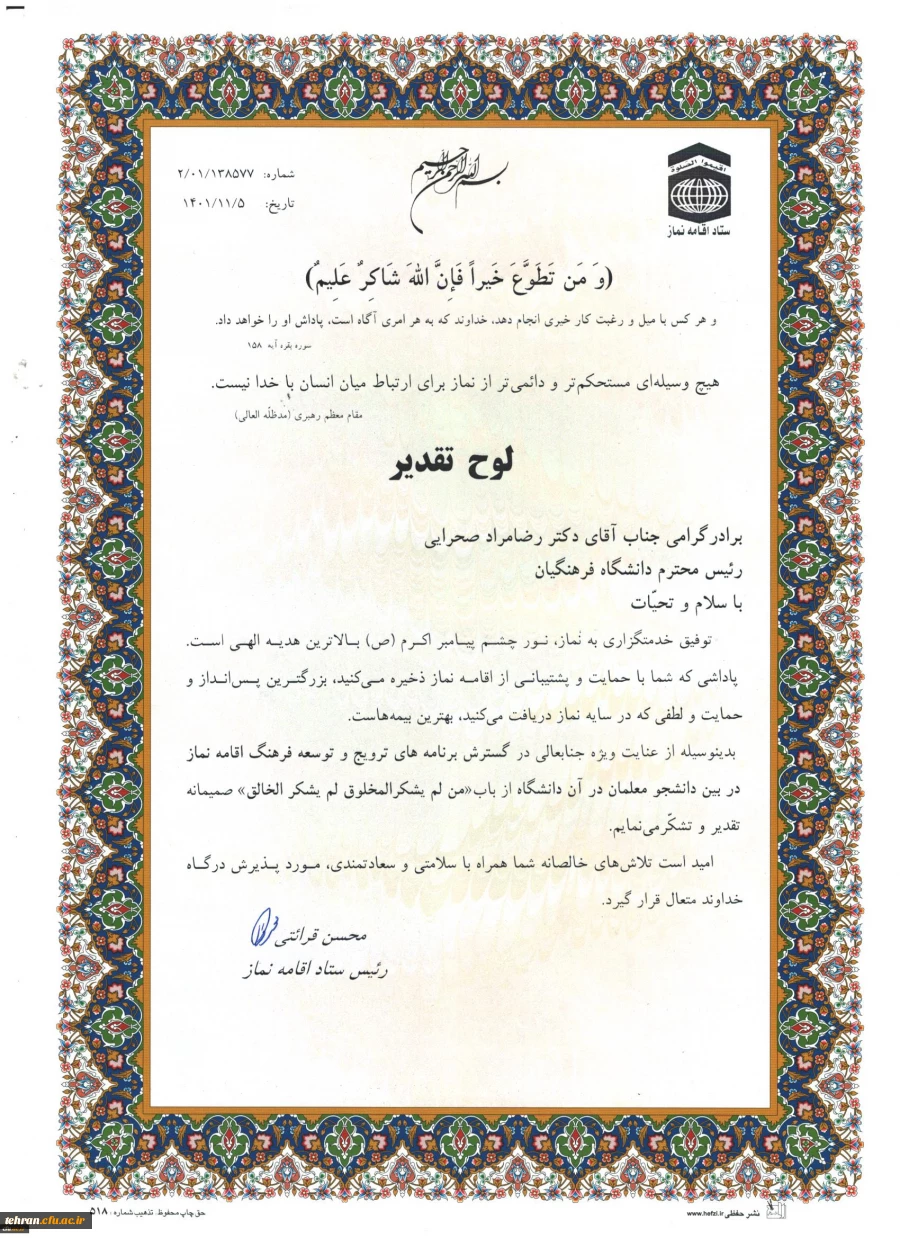 اقیموا الصلوة
ستاد اقامه نماز
بسم الله الرحمن الرحیم
شماره: ۲/۰۱/۱۳۸۵۷۷
تاریخ: ۱۴۰۱/۱۱/۵
(وَ مَن تَطَوَّعَ خَیراً فَإِنَّ اللهَ شَاکِرٌ عَلِیمٌ)
و هر کس با میل و رغبت کار خیری انجام دهد، خداوند که به هر امری آگاه است، پاداش او را خواهد داد.
سوره بقره آیه ۱۵۸
هیچ وسیله‌ای مستحکم‌تر و دائمی‌تر از نماز برای ارتباط میان انسان با خدا نیست.
مقام معظم رهبری (مدظلّه العالی)
لوح تقدیر
برادر گرامی جناب آقای دکتر رضامراد صحرایی
رئیس محترم دانشگاه فرهنگیان
با سلام و تحیّات
توفیق خدمتگزاری به نماز، نور چشم پیامبر اکرم (ص) بالاترین هدیه الهی است.
پاداشی که شما با حمایت و پشتیبانی از اقامه نماز ذخیره می‌کنید، بزرگترین پس‌انداز و
حمایت و لطفی که در سایه نماز دریافت می‌کنید، بهترین بیمه‌هاست.
بدینوسیله از عنایت ویژه جنابعالی در گسترش برنامه های ترویج و توسعه فرهنگ اقامه نماز
در بین دانشجو معلمان در آن دانشگاه از باب«من لم یشکرالمخلوق لم یشکر الخالق» صمیمانه
تقدیر و تشکّرمی‌نمایم.
امید است تلاش‌های خالصانه شما همراه با سلامتی و سعادتمندی، مورد پذیرش درگاه
خداوند متعال قرار گیرد.
محسن قرائتی
رئیس ستاد اقامه نماز
نشر حفظی www.hefzi.ir
حق چاپ محفوظ. تذهیب شماره: ۵۱۸
tehran.cfu.ac.ir